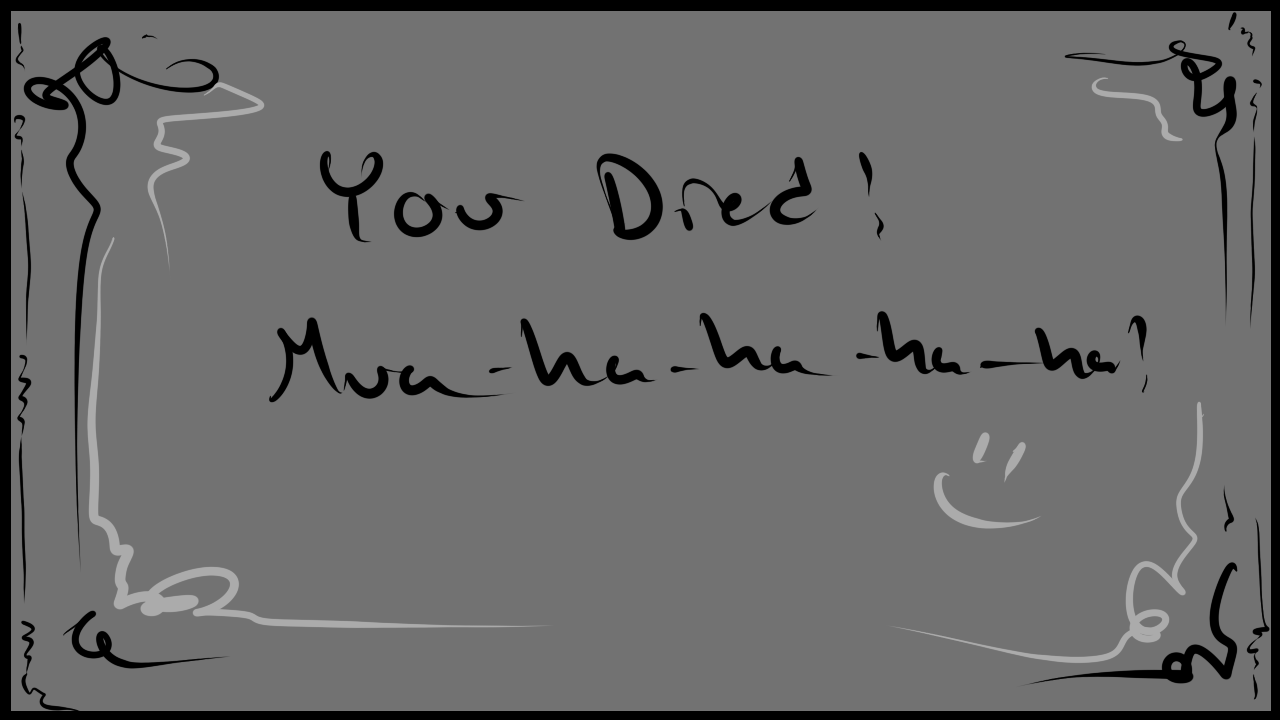 You Died!
Mua-ha-ha-ha-ha!